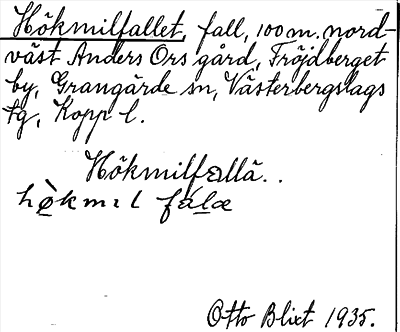 Hökmilfallet, fall, 100 m. nord-
väst Anders Ors gård, Fröjdberget
by, Grangärde sn, Västerbergslags
tg, Kopp l.
Hökmilfallä..
Otto Blixt 1935.